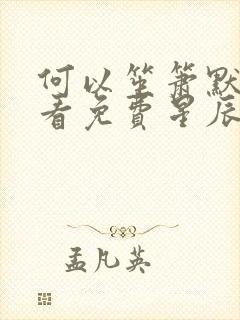 何以笙箫默
看免費星辰
孟凡英